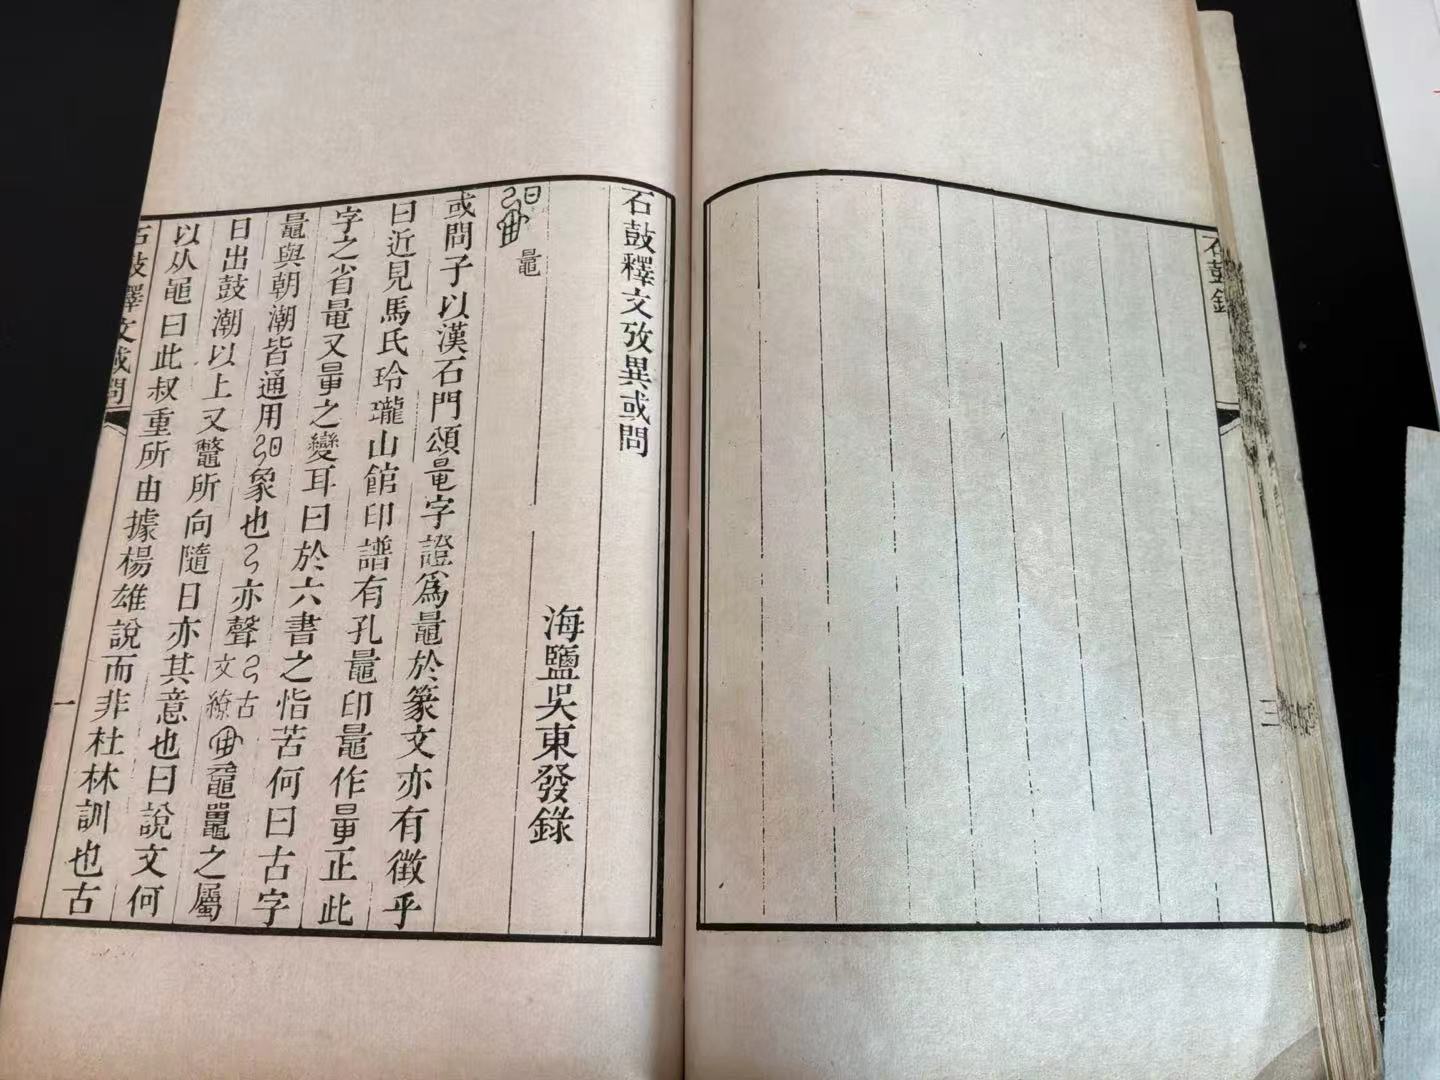 石鼓釋文攷異或問
海鹽吳東發錄
鼂
或問子以漢石門頌鼌字證爲鼂於篆文亦有徵乎
曰近見馬氏玲瓏山館印譜有孔鼂印鼂作量正此
字之省鼌又量之變耳曰於六書之恉苦何曰古字
鼂與朝潮皆通用象也亦聲古文繚鼀鼉之屬
日出鼓潮以上又鼈所向隨日亦其意也曰說文何
以从黽曰此叔重所由據楊雄說而非杜林訓也古
石鼓釋文或問
一
石鼓錄
三